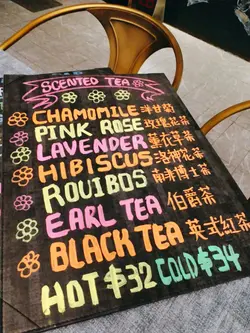 SCENTED TEA
CHAMOMILE 洋甘菊
PINK ROSE 玫瑰花茶
LAVENDER 薰衣草茶
HIBISCUS 洛神花茶
ROUIBOS 南非博士茶
EARL TEA 伯爵茶
BLACK TEA 英式紅茶
HOT $32 COLD $34